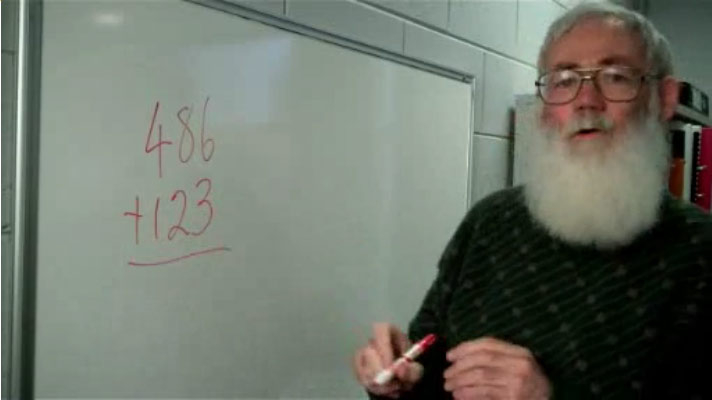 486
+123